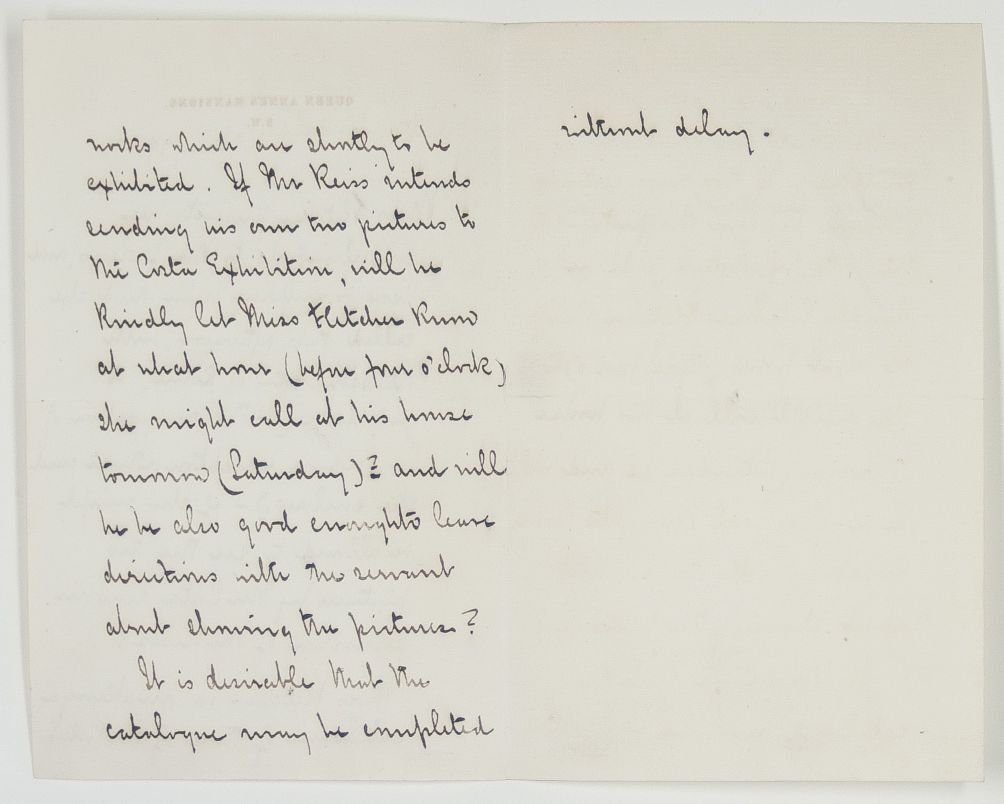 works which are shortly to be
exhibited. If Mr Reiss intends
sending his own two pictures to
the Costa Exhibition, will he
kindly let Miss Fletcher know
at what hour (before four o'clock)
she might call at his house
tomorrow (Saturday)? and will
he be also good enough to leave
directions with the servant
about showing the pictures?
It is desirable that the
catalogue may be completed
without delay.
QUEEN ANNE'S MANSIONS,
S.W.